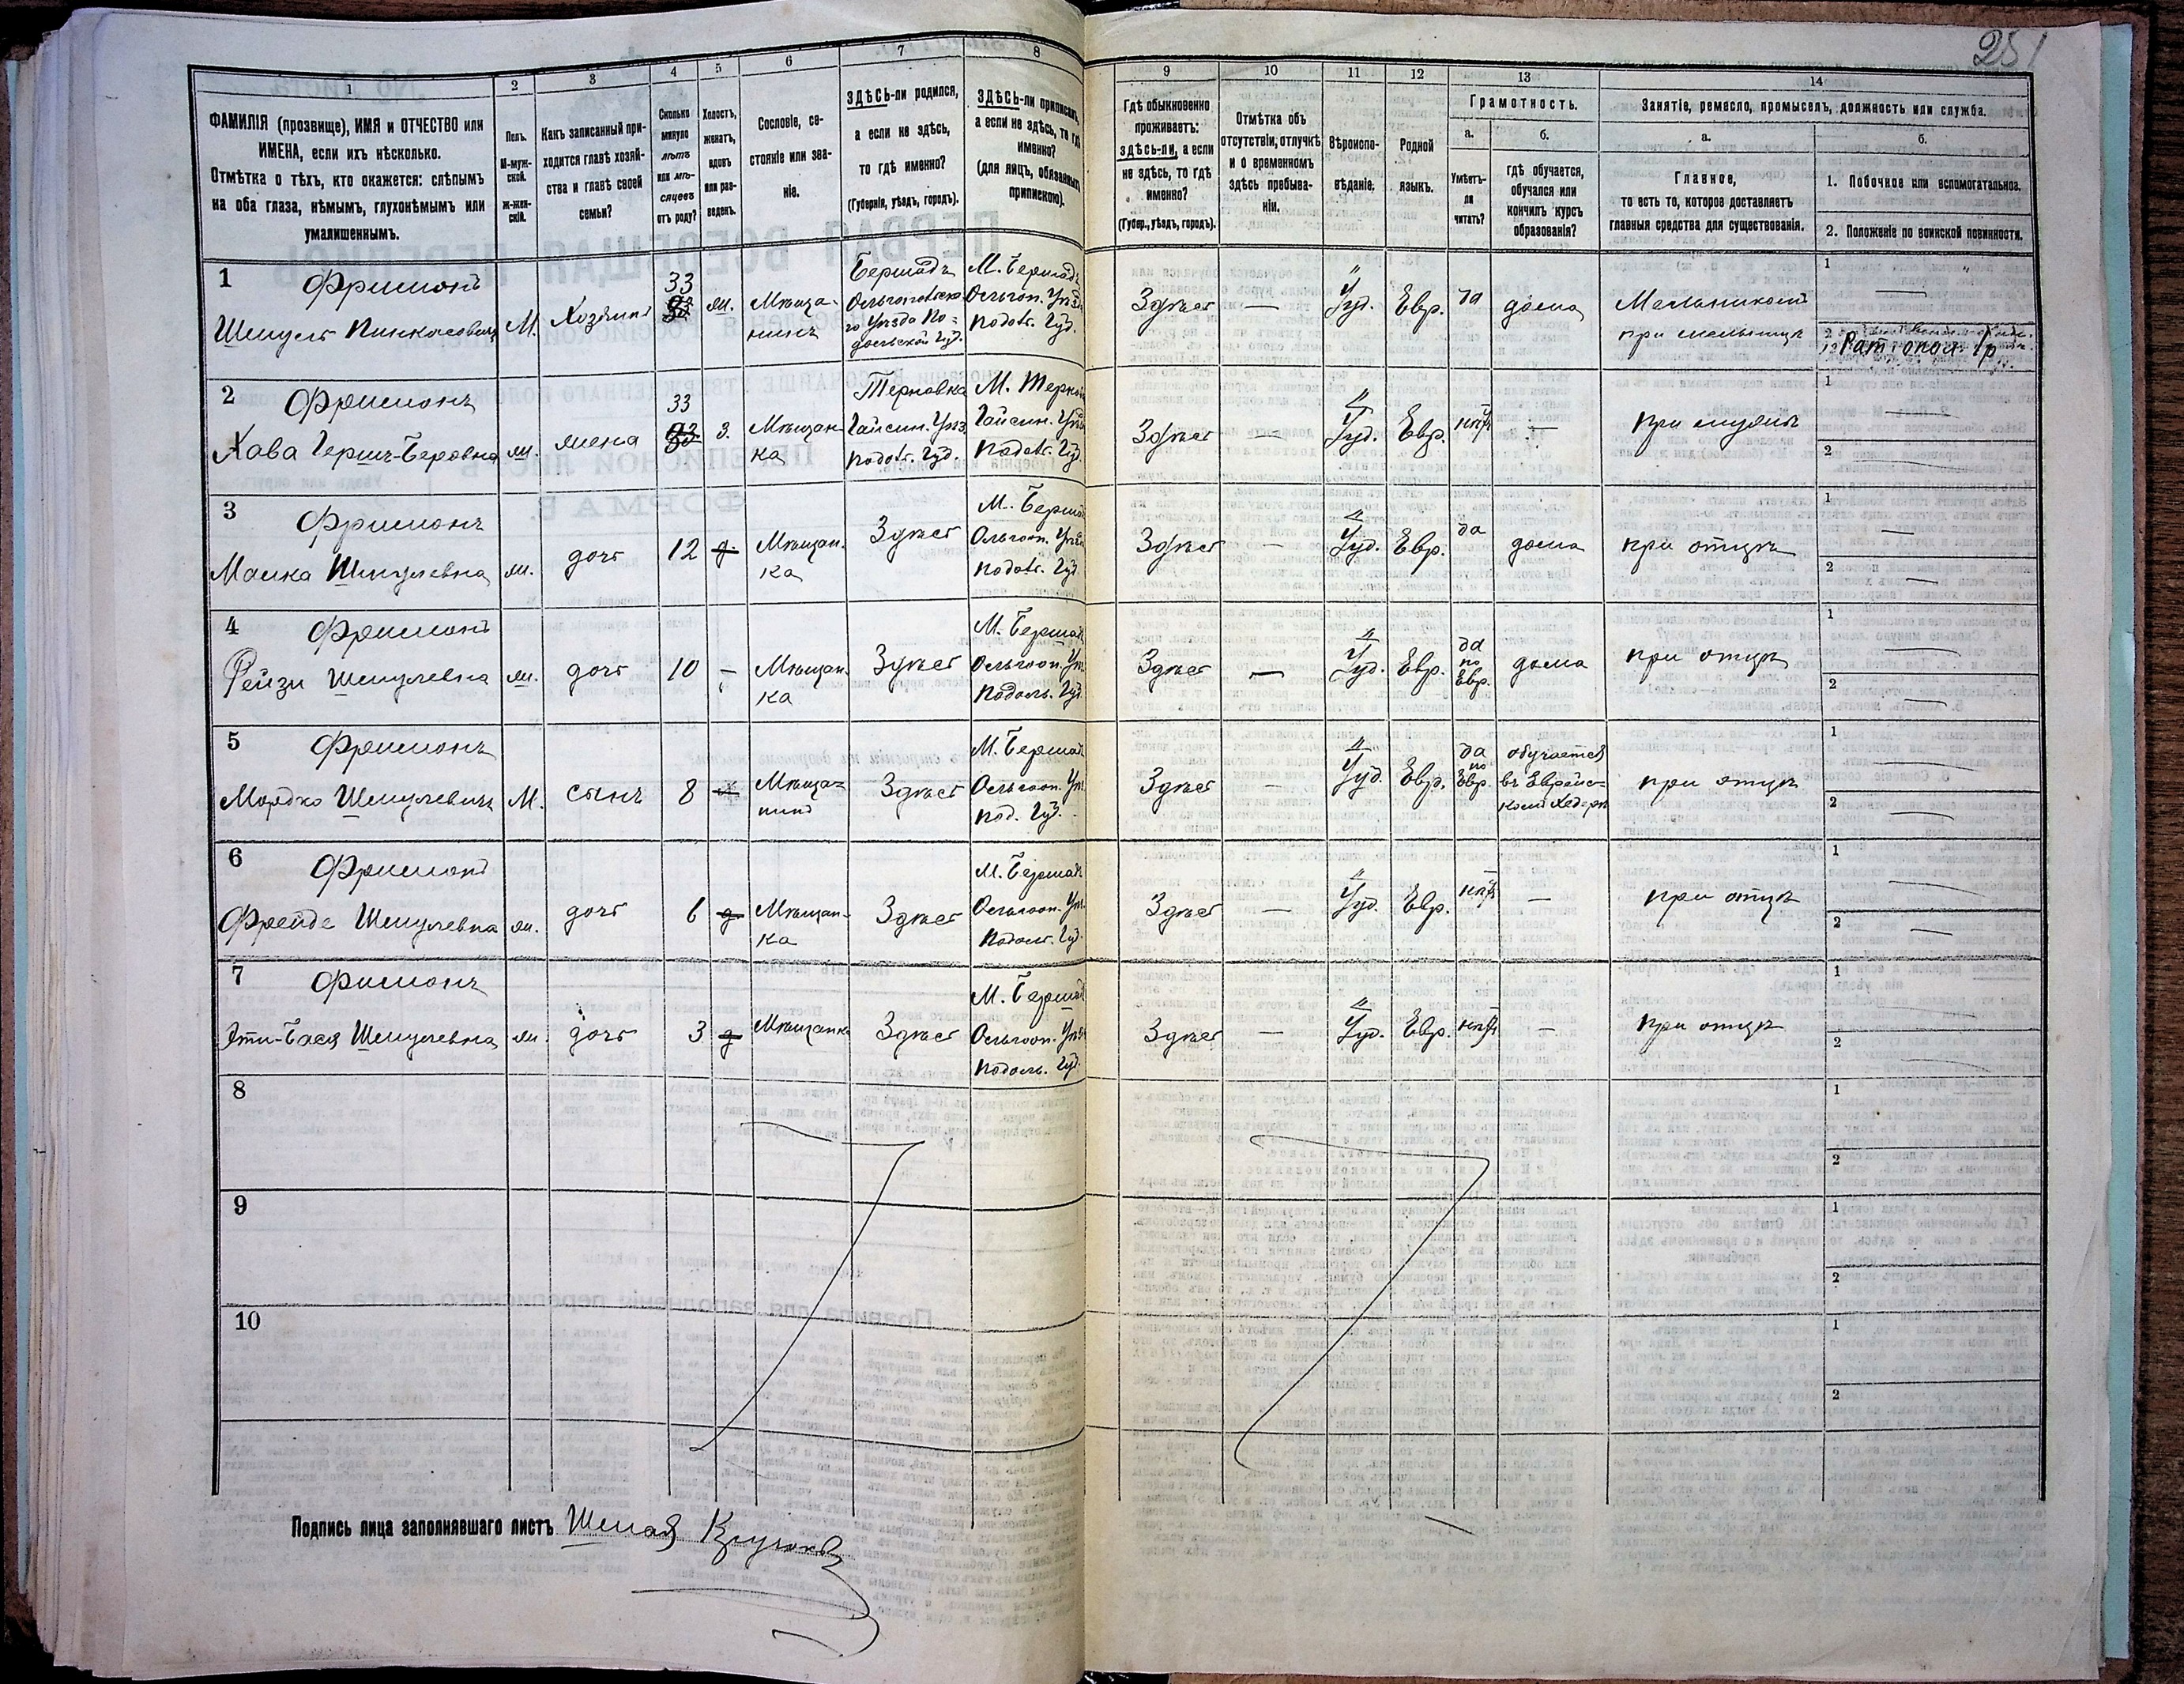 251
1
2
3
4
5
6
7
8
9
10
11
12
13
14
ФАМИЛІЯ (прозвище), ИМЯ и ОТЧЕСТВО или
ИМЕНА, если ихъ нѣсколько.
Отмѣтка о тѣхъ, кто окажется: слѣпымъ
на оба глаза, нѣмымъ, глухонѣмымъ или
умалишеннымъ.
Полъ.
М-муж-
ской.
ж-жен-
скій.
Какъ записанный при-
ходится главѣ хозяй-
ства и главѣ своей
семьи?
Сколько
минуло
лѣтъ
или мѣ-
сяцевъ
отъ роду?
Холостъ,
женатъ,
вдовъ
или раз-
веденъ.
Сословіе, со-
стояніе или зва-
ніе.
ЗДѢСЬ-ли родился,
а если не здѣсь,
то гдѣ именно?
(Губернія, уѣздъ, городъ).
ЗДѢСЬ-ли приписанъ,
а если не здѣсь, то гдѣ
именно?
(для лицъ, обязанныхъ
припискою).
Гдѣ обыкновенно
проживаетъ:
здѣсь-ли, а если
не здѣсь, то гдѣ
именно?
(Губер., уѣздъ, городъ).
Отмѣтка объ
отсутствіи, отлучкѣ
и о временномъ
здѣсь пребыва-
ніи.
Вѣроиспо-
вѣданіе.
Родной
языкъ.
Грамотность.
а.
Умѣетъ-
ли
читать?
б.
гдѣ обучается,
обучался или
кончилъ курсъ
образованія?
Занятіе, ремесло, промыселъ, должность или служба.
а.
Главное,
то есть то, которое доставляетъ
главныя средства для существованія.
б.
1. Побочное или вспомогательное.
2. Положеніе по воинской повинности.
1 Фришонъ
Шмуль Пинкасовичъ
М.
Хозяинъ
33
ж.
Мѣща-
нинъ
Бершадь
Ольгопольска-
го Уѣзда По-
дольской Губ.
М. Бершадь
Ольгоп. Уѣзд
Подоль. Губ.
Здѣсь
—
Іуд.
Евр.
да
дома
Мельникомъ
при мельницѣ
1 —
2 Рат. опол. 1 р.
2 Фришонъ
Хава Герш-Беровна
ж.
жена
33
З.
Мѣщан
ка
Терновка
Гайсин. Уѣз.
Подоль. Губ.
М. Терновка
Гайсин. Уѣзд
Подоль. Губ.
Здѣсь
—
Іуд.
Евр.
нѣтъ
—
при мужѣ
1 —
2 —
3 Фришонъ
Малка Шмулевна
ж.
дочь
12
Мѣщан.
ка
Здѣсь
М. Бершадь
Ольгоп. Уѣзд
Подоль. Губ.
Здѣсь
—
Іуд.
Евр.
да
дома
при отцѣ
1 —
2 —
4 Фришонъ
Рейзи Шмулевна
ж.
дочь
10
—
Мѣщан.
ка
Здѣсь
М. Бершадь
Ольгоп. Уѣз
Подоль. Губ
Здѣсь
—
Іуд.
Евр.
да
по
Евр.
дома
при отцѣ
1 —
2 —
5 Фришонъ
Мордко Шмулевичъ
М.
сынъ
8
Мѣща-
нинъ
Здѣсь
М. Бершадь
Ольгоп. Уѣз
Под. Губ.
Здѣсь
—
Іуд.
Евр.
да
по
Евр.
обучается
въ Еврейс-
комъ Хедерѣ
при отцѣ
1 —
2 —
6 Фришонъ
Фрейде Шмулевна
ж.
дочь
6
Мѣщан-
ка
Здѣсь
М. Бершадь
Ольгоп. Уѣз
Подоль. Губ.
Здѣсь
—
Іуд.
Евр.
нѣтъ
—
при отцѣ
1 —
2 —
7 Фишонъ
Эти-Бася Шмулевна
ж.
дочь
3
Мѣщанка
Здѣсь
М. Бершадь
Ольгоп. Уѣз
Подоль. Губ.
Здѣсь
—
Іуд.
Евр.
нѣтъ
—
при отцѣ
1 —
2 —
8
1
2
9
1
2
10
1
2
Подпись лица заполнявшаго листъ